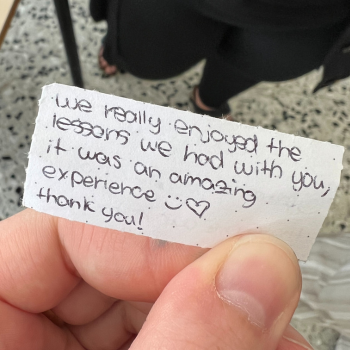 we really enjoyed the
lessons we had with you,
it was an amazing
experience :) ♡
thank you!